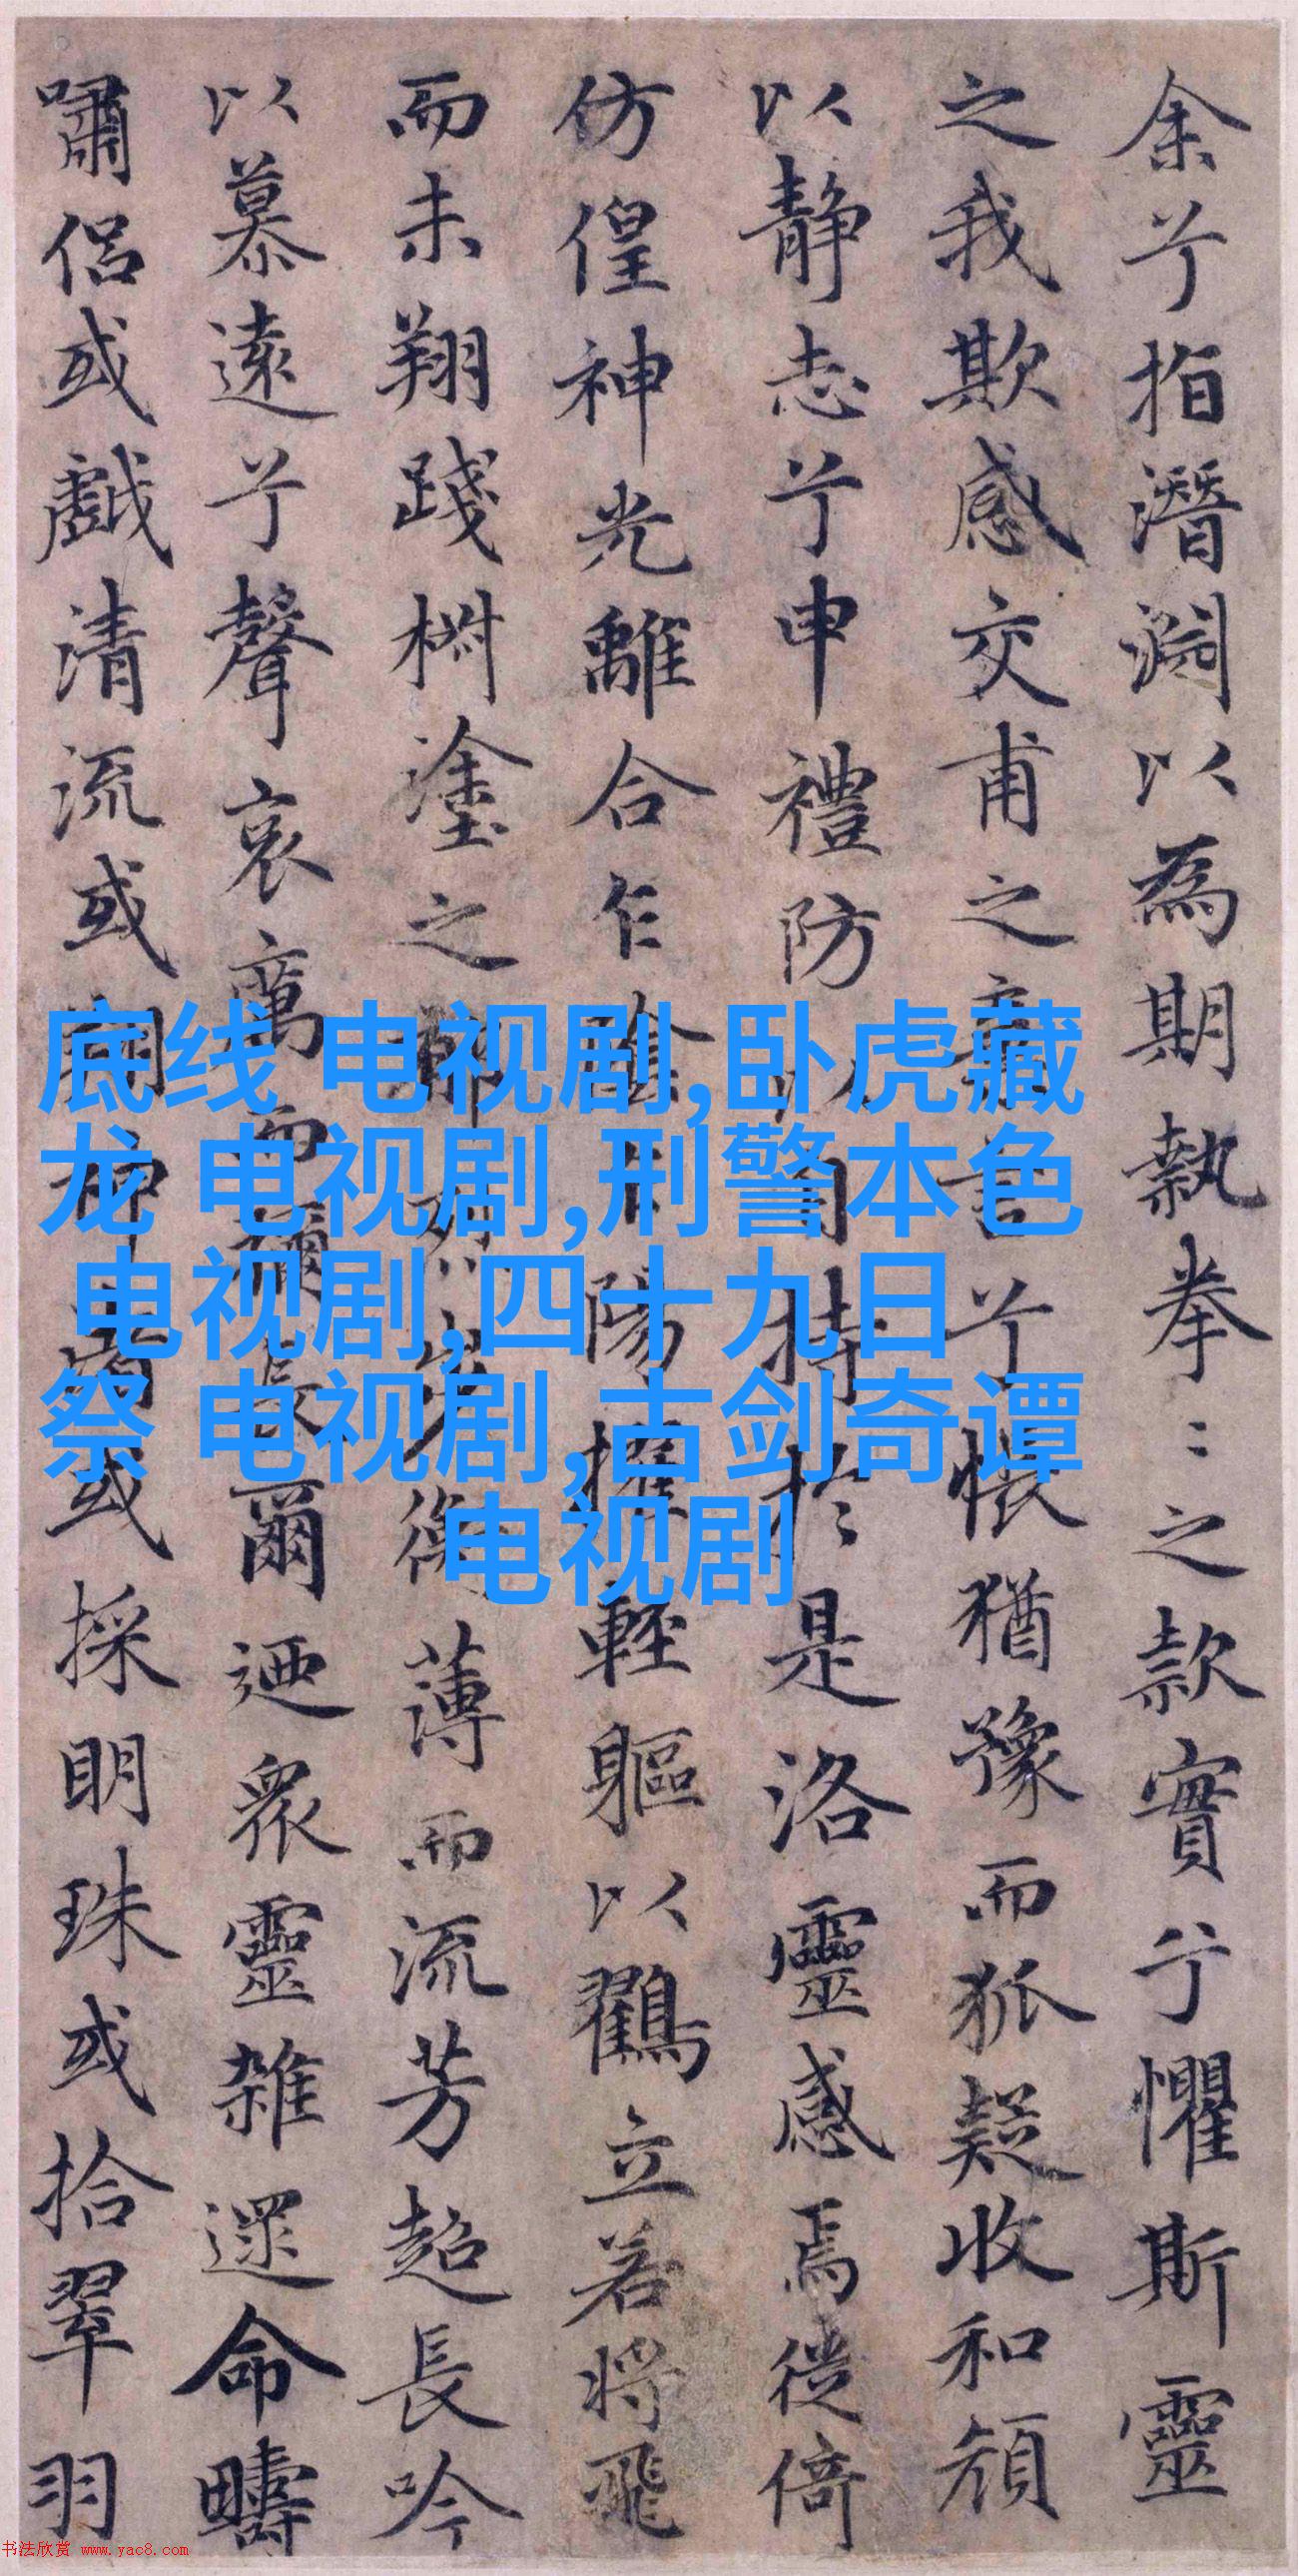 余兮指潛渊以為期執拳〻之款實兮懼斯靈
之我欺感交甫之棄言兮悵猶豫而狐疑收和顔
以靜志兮申禮防以自持於〻是洛靈感焉徙倚
仿偟神光離合乍陰乍陽擢輕軀以鸛立若將飛
而未翔踐椒塗之郁烈步衡薄而流芳超長吟
以慕遠兮聲哀厲而彌長爾迺衆靈雜遝命疇
嘯侣或戲清流或翔神渚或採明珠或拾翠羽
底线 电视剧,卧虎藏
龙 电视剧,刑警本色
电视剧,四十九日
祭 电视剧,古剑奇谭
电视剧
书法欣赏 www.yac8.com